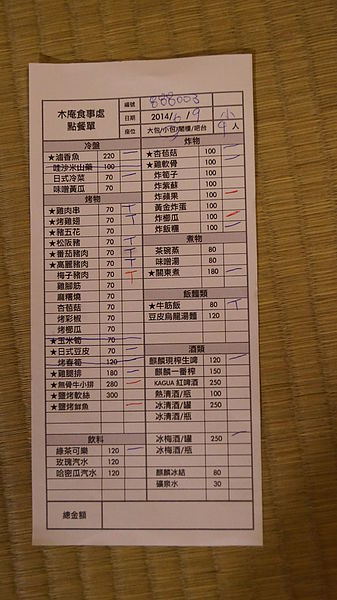 木庵食事處
點餐單
編號 888003
日期 2014/5/9
座位 大包/小包/閣樓/吧台 人
冷盤
★滷香魚 220
哇沙米山藥 100
日式冷菜 70
味噌黃瓜 70
烤物
★雞肉串 70
★烤雞翅 70
★豬五花 70
★松阪豬 70
★番茄豬肉 70
★高麗豬肉 70
梅子豬肉 70
雞腳筋 70
麻糬燒 70
烤彩椒 70
烤櫛瓜 70
★玉米筍 70
★日式豆皮 70
烤春筍 120
★雞腿排 180
★無骨牛小排 280
★鹽烤軟絲 300
★鹽烤鮮魚
飲料
綠茶可樂 120
玫瑰汽水 120
哈密瓜汽水 120
總金額
炸物
★杏苞菇 100
★雞軟骨 100
炸筍子 100
炸紫蘇 100
炸蘋果 100
黃金炸蛋 100
炸櫛瓜 100
炸飯糰 100
煮物
茶碗蒸 80
味噌湯 80
★關東煮 180
飯麵類
★牛筋飯 80
豆皮烏龍湯麵 120
酒類
麒麟現榨生啤 120
麒麟一番榨 150
KAGUA 紅啤酒 250
熱清酒/瓶 100
冰清酒/瓶
冰清酒/瓶
冰梅酒/罐 250
冰梅酒/瓶
麒麟冰結 80
礦泉水 30